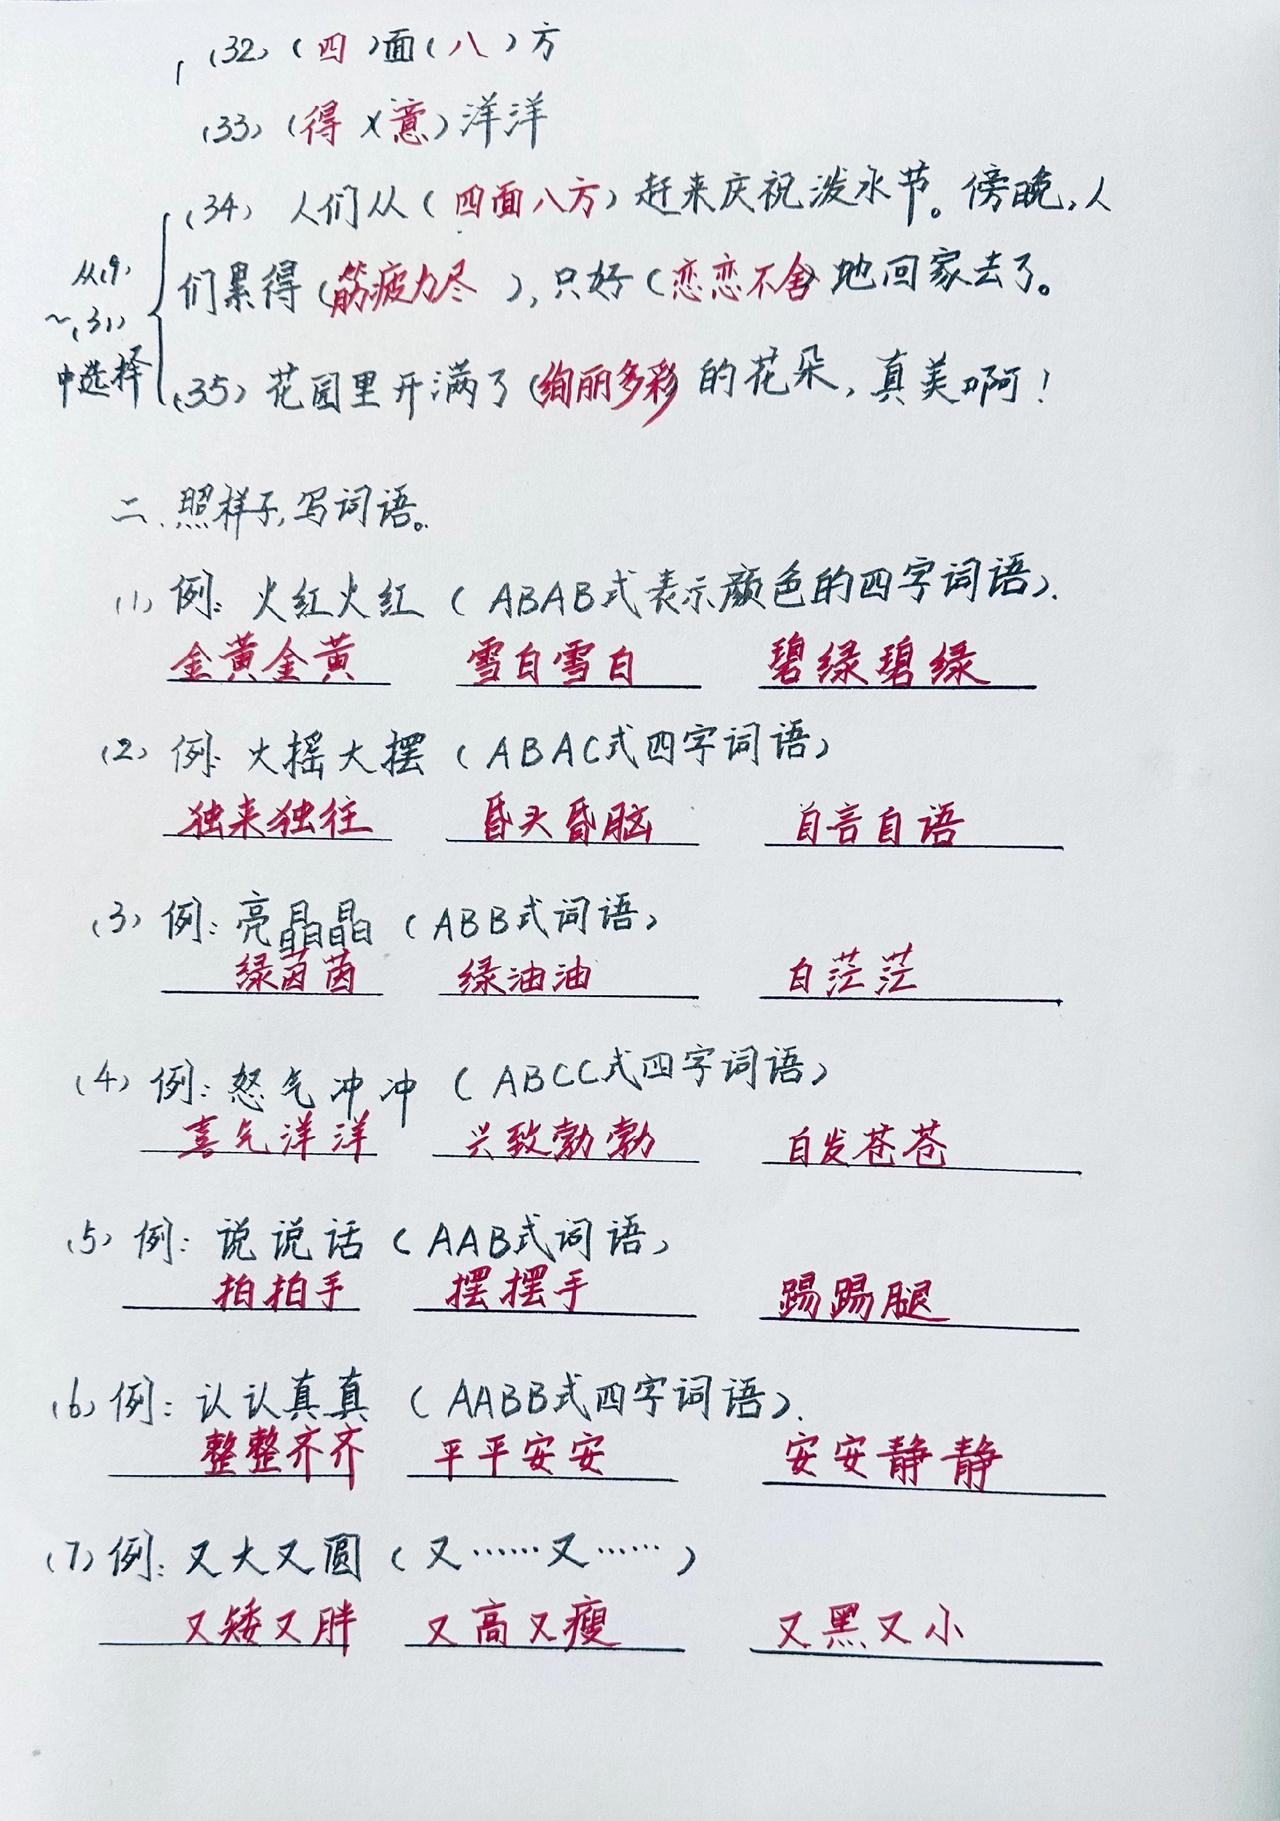 (32)(四)面(八)方
(33)(得)(意)洋洋
(34)人们从(四面八方)赶来庆祝泼水节。傍晚,人
们累得(筋疲力尽),只好(恋恋不舍)地回家去了。
从(9)
~(31)
中选择
(35)花园里开满了(绚丽多彩)的花朵,真美啊!
二、照样子,写词语。
(1)例:火红火红(ABAB式表示颜色的四字词语).
金黄金黄 雪白雪白 碧绿碧绿
(2)例:大摇大摆(ABAC式四字词语)
独来独往 昏头昏脑 自言自语
(3)例:亮晶晶(ABB式词语)
绿茵茵 绿油油 白茫茫
(4)例:怒气冲冲(ABCC式四字词语)
喜气洋洋 兴致勃勃 白发苍苍
(5)例:说说话(AAB式词语)
拍拍手 摆摆手 踢踢腿
(6)例:认认真真(AABB式四字词语).
整整齐齐 平平安安 安安静静
(7)例:又大又圆(又……又……)
又矮又胖 又高又瘦 又黑又小